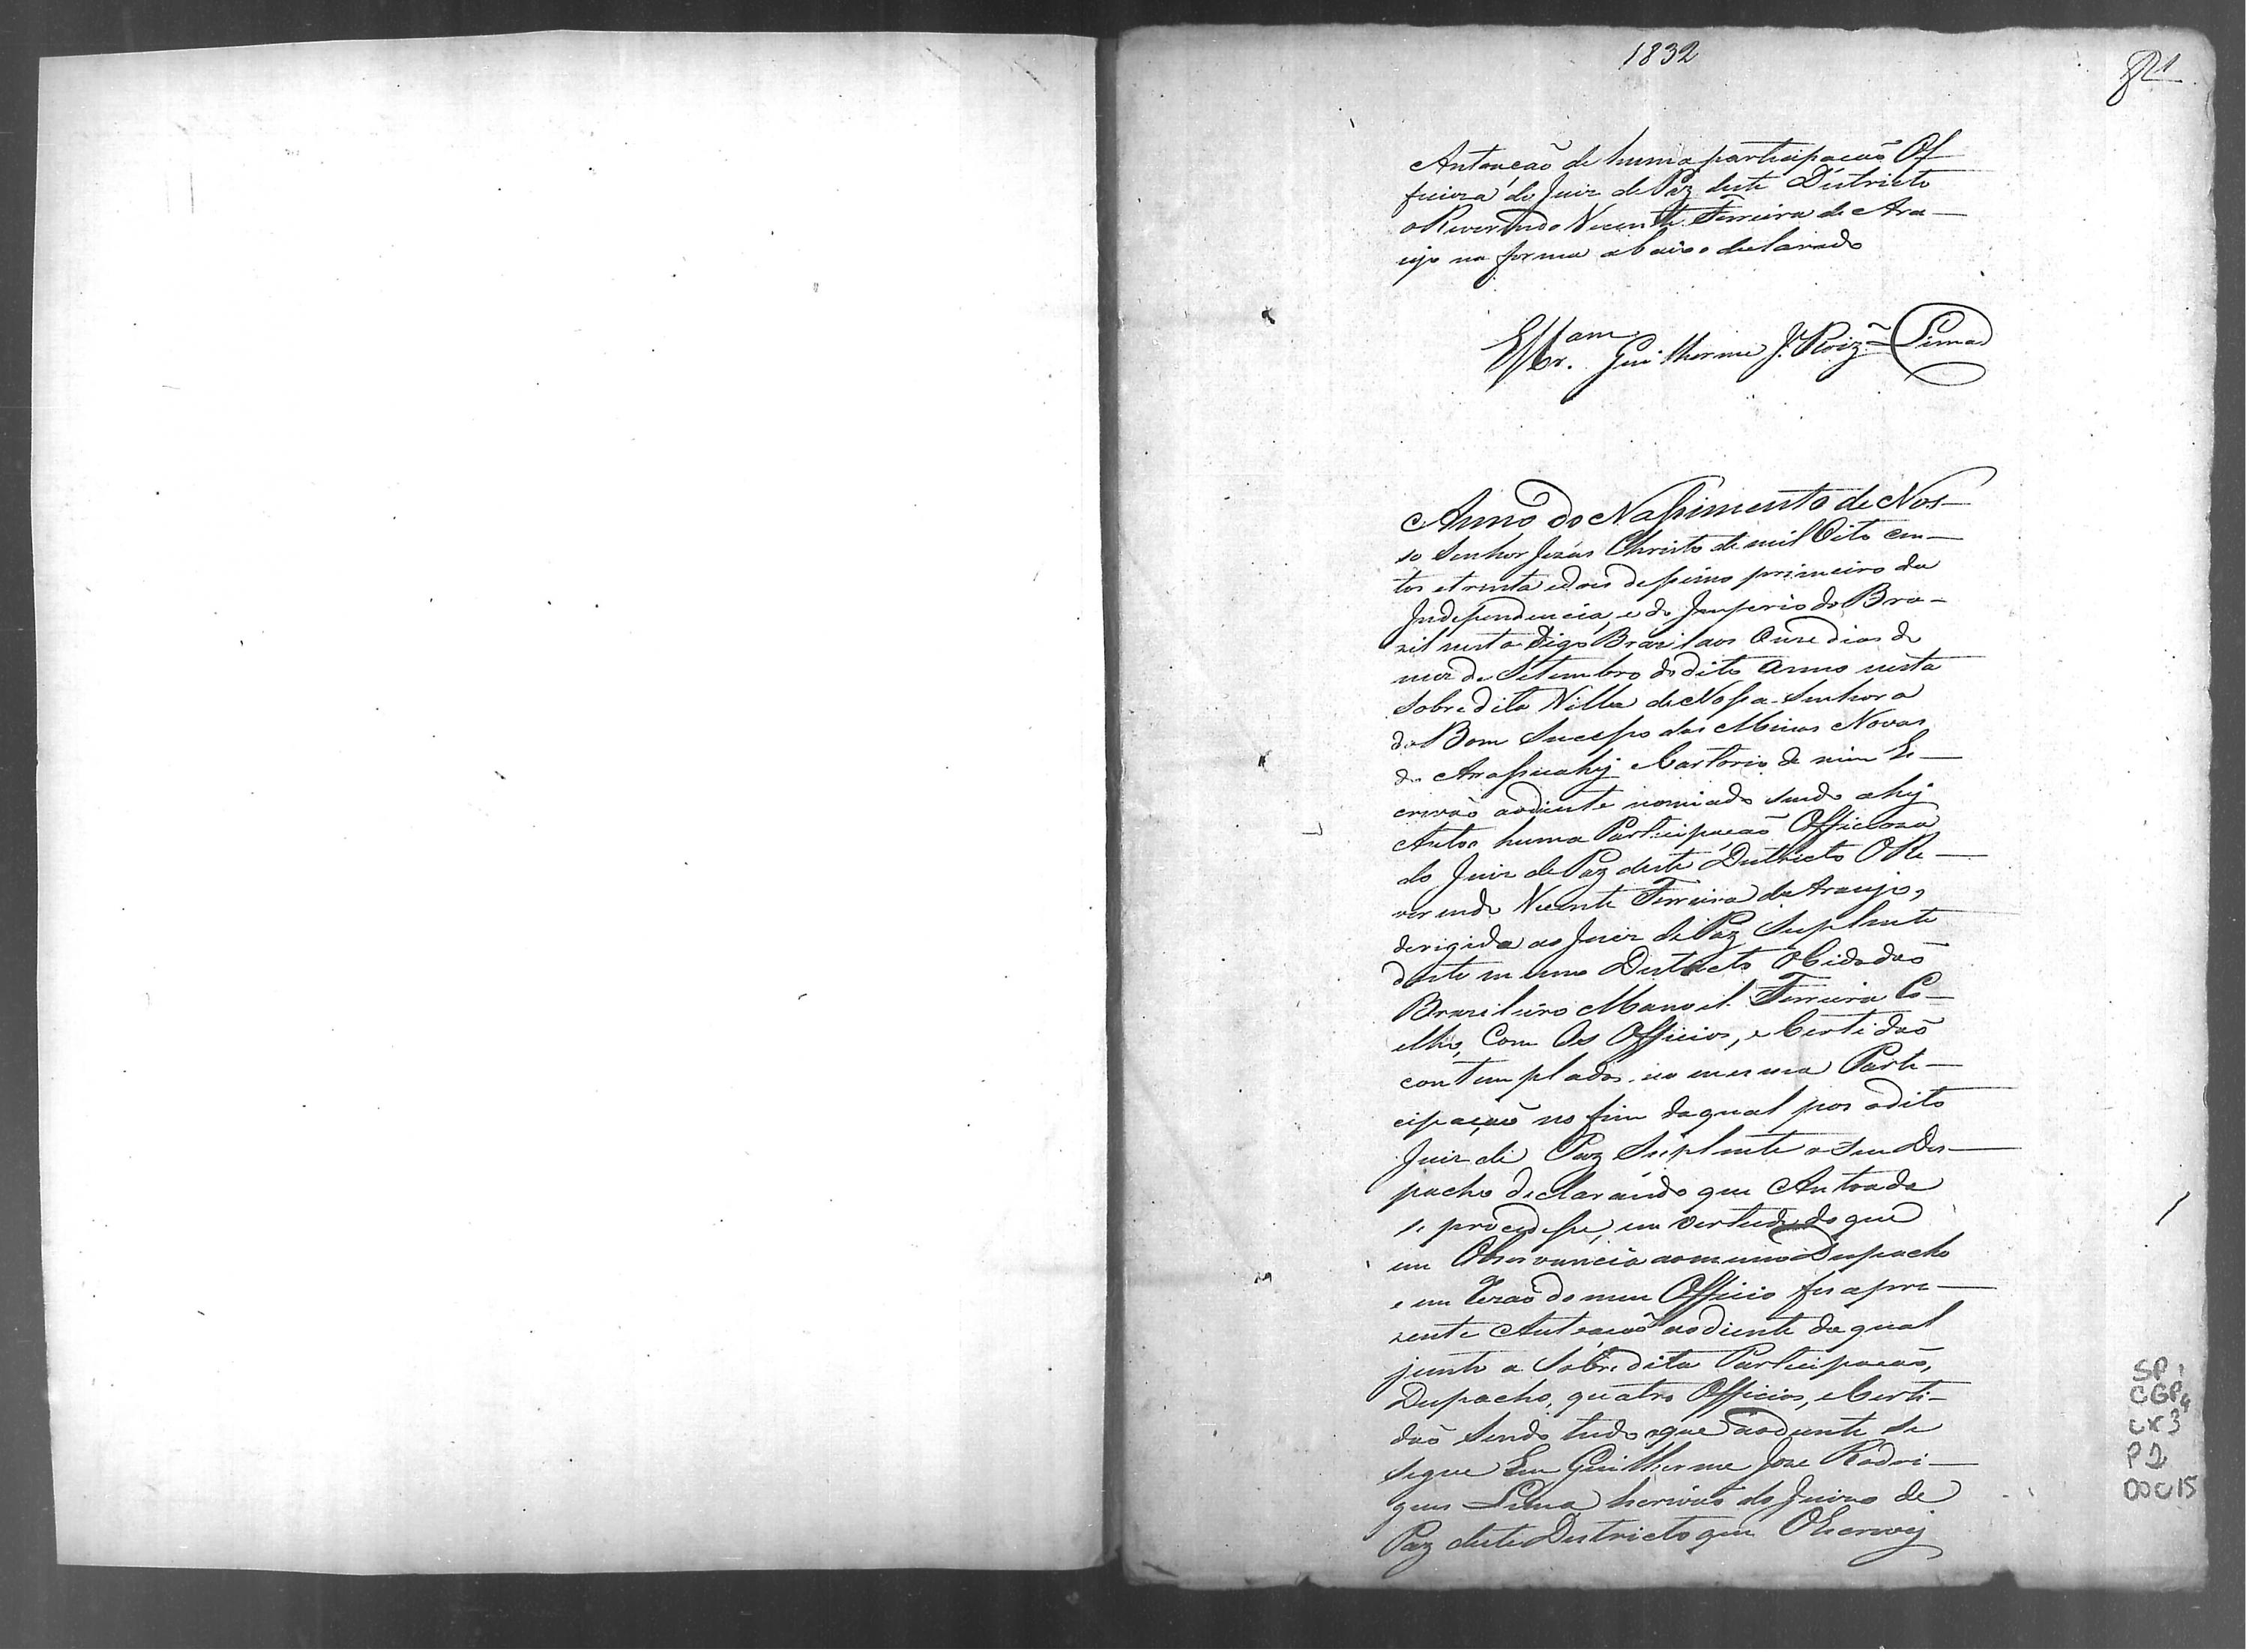 1832
1
Autoação de huma participação Of-
ficioza do Juiz de Paz deste Districto
o Reverendo Vicente Ferreira de Ara-
ujo na forma abaixo declarado
Guilherme J.e Roiz Lima
Anno do Nassimento de Nos-
so Senhor Jezus Christo de mil Oito cen-
tos etrinta edois dessimo primeiro da
Independencia, e do Imperio do Bra-
zil nesta digo Brazil aos Onze dias do
mez de Setembro do dito Anno nesta
Sobredita Villa de Nossa Senhora
do Bom Sucesso das Minas Novas
do Arassuahy e Cartorio de mim Es-
crivão aodiante nomiado sendo ahy
Autoo huma Participação Officioza
do Juiz de Paz deste Districto O Re-
verendo Vicente Ferreira de Araujo,
derigida ao Juiz de Paz Suplente
deste mesmo Districto o Cidadão
Brazileiro Manoel Ferreira Co-
elho, Com Os Officios, e Certidão
contemplados na mesma Parte-
cipação no fim daqual pos odito
Juiz de Paz Suplente o seu Des-
pacho declarando que Autoada
se procedesse, em vertude do que
em Observancia aomesmo Despacho
e em rezão do meu Officio fis apre-
zente Autoação aodiente da qual
junto a Sobredita Participação,
Despacho, quatro Officios, e Certi-
dão sendo tudo oque aodiente se
segue Eu Guilherme Joze Rodri-
gues Lima Escrivão do Juizo de
Paz deste Districto que O Escrevy
SP 1
CGP4
CX3
P2
DOC15